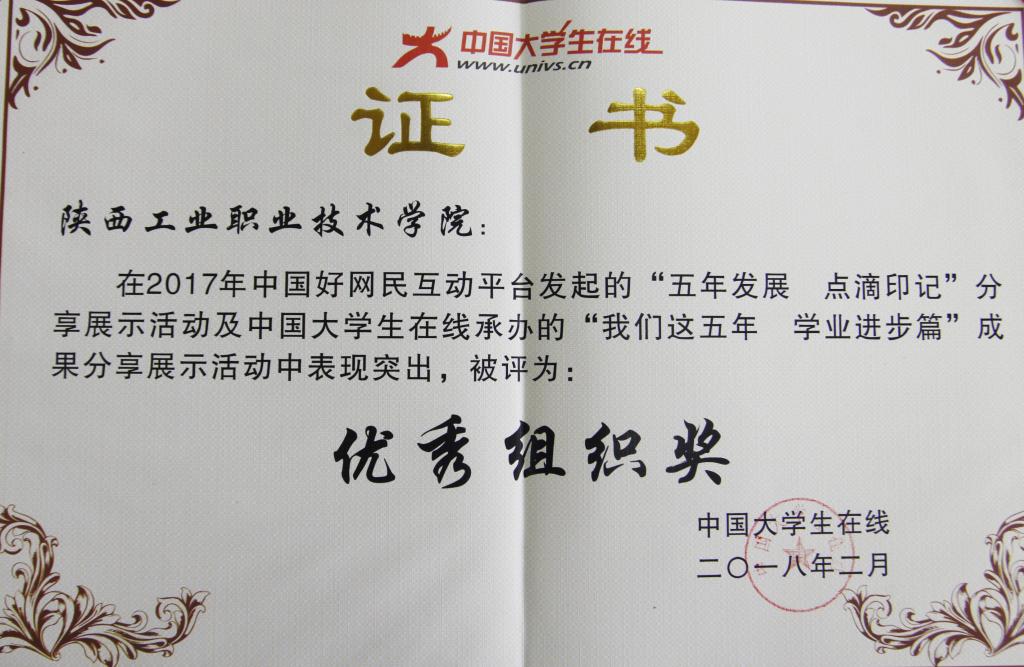 中国大学生在线
www.univs.cn
证 书
陕西工业职业技术学院：
在2017年中国好网民互动平台发起的“五年发展 点滴印记”分
享展示活动及中国大学生在线承办的“我们这五年 学业进步篇”成
果分享展示活动中表现突出，被评为：
优秀组织奖
中国大学生在线
二〇一八年二月